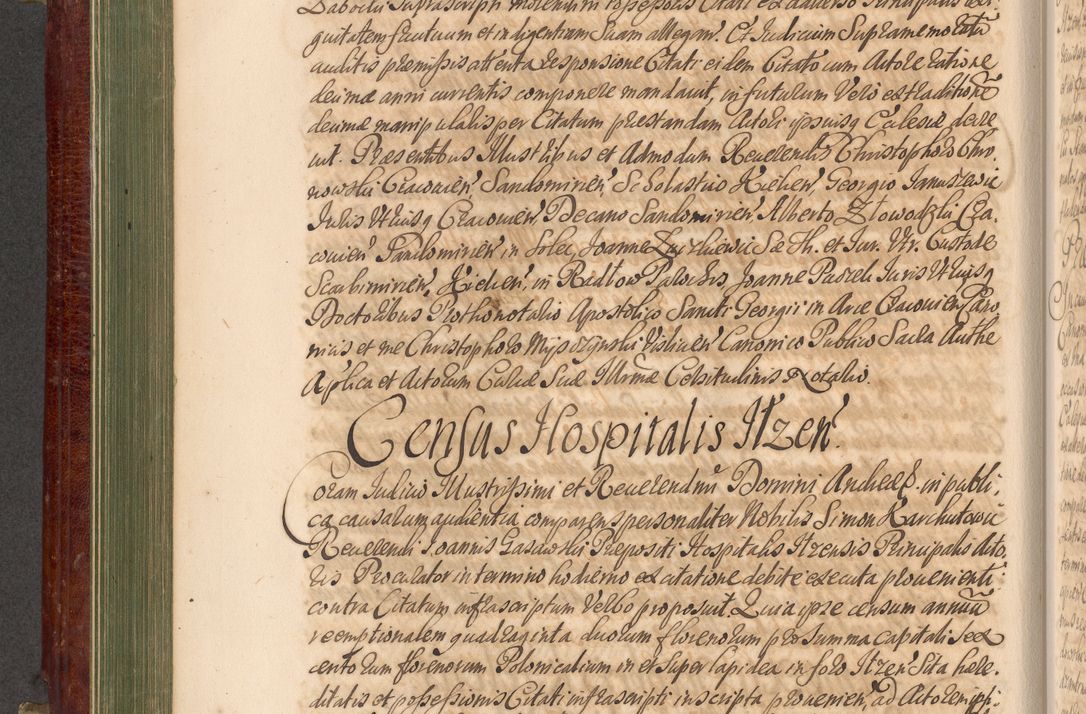 quitatem fructuum et indigentiam suam allegavit. Et Judicium Supramemorata
auditis præmissis attenta responsione Citati eidem Citato cum Actore ratione
decimæ anni currentis componere mandavit, in futurum Vero extraditione
decimæ manipularis per Citatum præstandam Actori ipsiusq Ecclesiæ decre
vit. Præsentibus Illustribus et Admodum Reverendis Christophoro Chro
nowski Cracovien Sandomirien Scholastico Kielcen Georgio Januszewic
Juris Utriusq Cracovien Decano Sandomirien, Alberto Złowodzki Cra.
covien Sandomirien in Solec, Joanne Zwizkiewic Sæ Th. et Jur. Utr. Custode
Scarbimirien, Kielcen, in Radłow Parochis, Joanne Puzeli Juris Utriusq
Doctoribus Prothonotario Apostolico Sancti Georgii in Arce Cracovien Cano
nicis et me Christophoro Myszczynski Visliciën Canonico Publico Sacra Authe
Aplica et Actorum Curiæ Suæ Illrmæ Celsitudinis Notario.
Census Hospitalis Itzen.
Coram Judicio Illustrissimi et Reverendmi Domini Andreæ S. in publi.
ca causarum audientia comparens personaliter Nobilis Simon Karchutowic
Reverendi Joannis Gasawski Præpositi Hospitalis Itzensis Principalis Acto.
ris Procurator in termino hodierno ex citatione debite executa provenienti
contra Citatum infrascriptum Verbo proposuit. Quia ipse censum annuū
reemptionalem quadraginta duorum florenorum pro summa capitali sex
centorum florenorum Polonicalium in et super lapidea in foro Itzen sita hære.
ditatis et possessionis Citati infrascripti inscripta provenien, ad Actorem ipsi.